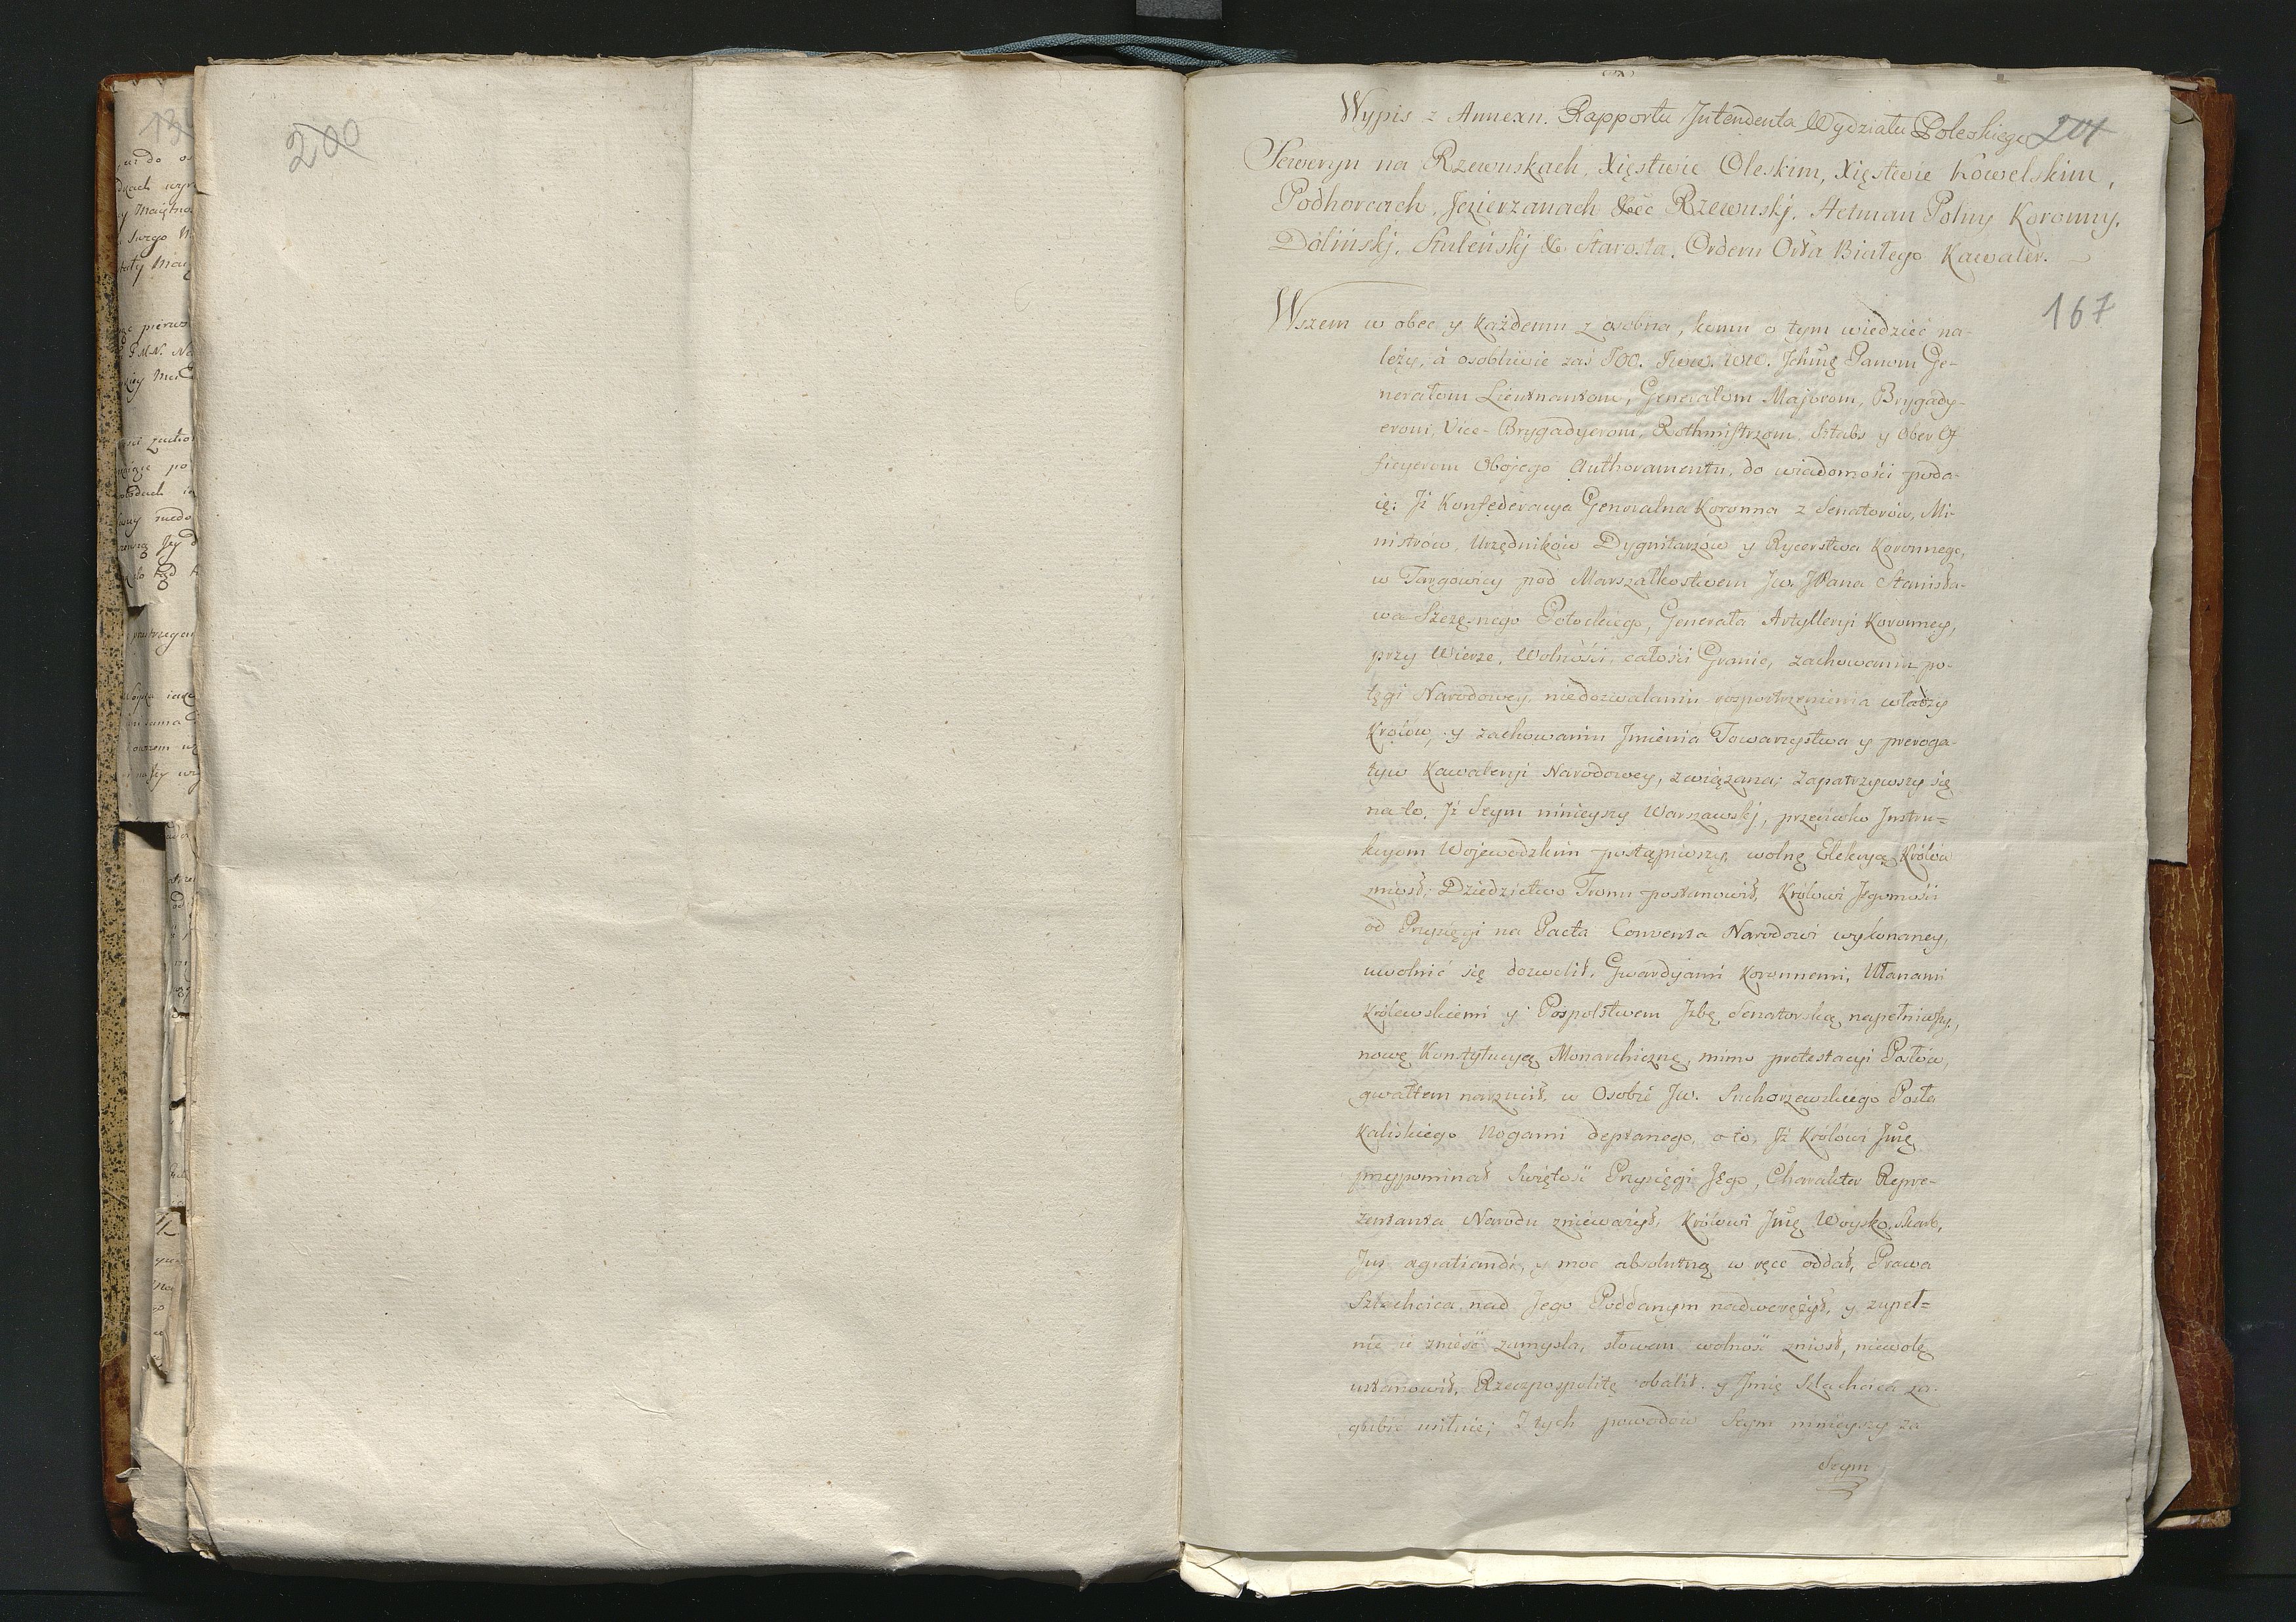 200
Wypis z Annexu. Rapportu Intendenta Wydziału Poleskiego 201
Seweryn na Rzewuskach, Xięstwie Oleskim, Xięstwie Kowelskim,
Podhorcach, Jezierzanach &c Rzewuskj, Hetman Polny Koronny,
Dolinskj, Stuleńskj &c Starosta, Orderu Orła Białego Kawaler.
167
Wszem w obec y każdemu z osobna, komu o tym wiedzieć na-
leży, á osobliwie zaś JOO. Jww. WW. Ichmę Panom Ge-
nerałom Lieutnantom, Generałom Majorom, Brygady-
erom, Vice-Brygadyerom, Rothmistrzom, Sztabs y Ober Of-
ficyerom Obojego Authoramentu, do wiadomości poda-
ię: Jż Konfederacya Generalna Koronna z Senatorów, Mi-
nistrów, Urzędników Dygnitarzów y Rycerstwa Koronnego,
w Targowicy pod Marszałkostwem Jw. JPana Stanisła-
wa Szczęsnego Potockiego, Generała Artylleryi Koronney,
przy Wierze, Wolności, całości Granic, zachowaniu po-
tęgi Narodowey, niedozwalaniu rospostrzenienia władzy
Królów, y zachowaniu Jmienia Towarzystwa y preroga-
tyw Kawaleryi Narodowey, związana; Zapatrzywszy się
na to, Jż Seym ninieyszy Warszawskj, przeciwko Jnstru=
kcyom Wojewodzkim postąpiwszy, wolnę Elekcyą Królów
zniosł, Dziedzictwo Tronu postanowił, Królowi Jegomości
od Przysięgi na Pacta Conventa Narodowi wykonaney,
uwolnić się dozwolił, Gwardyami Koronnemi, Ułanami
Królewskiemi y Pospolstwem Jzbę Senatorską napełniwszy,
nowę Konstytucyą Monarchiczną, mimo protestacyi Posłów,
gwałtem narzucił, w Osobie Jw. Suchorzewskiego Posła
Kaliskiego Nogami deptanego, o to, Jż Królowi Jmę
przypominał Swiętość Przysięgi Jego, Charakter Repre-
zentanta Narodu znieważył, Królowi Jmę Woysko, Skarb,
Jus agratiandi, y moc absolutną w ręce oddał, Prawa
Szlachcica nad Jego Poddanym nadwerężył, y zupeł=
nie ie znieść zamyśla, słowem wolność zniosł, niewolę
ustanowił, Rzeczpospolitę obalił, y Jmię Szlachcica za-
gubić usiłuie; Z tych powodów Seym ninieyszy za
Seym